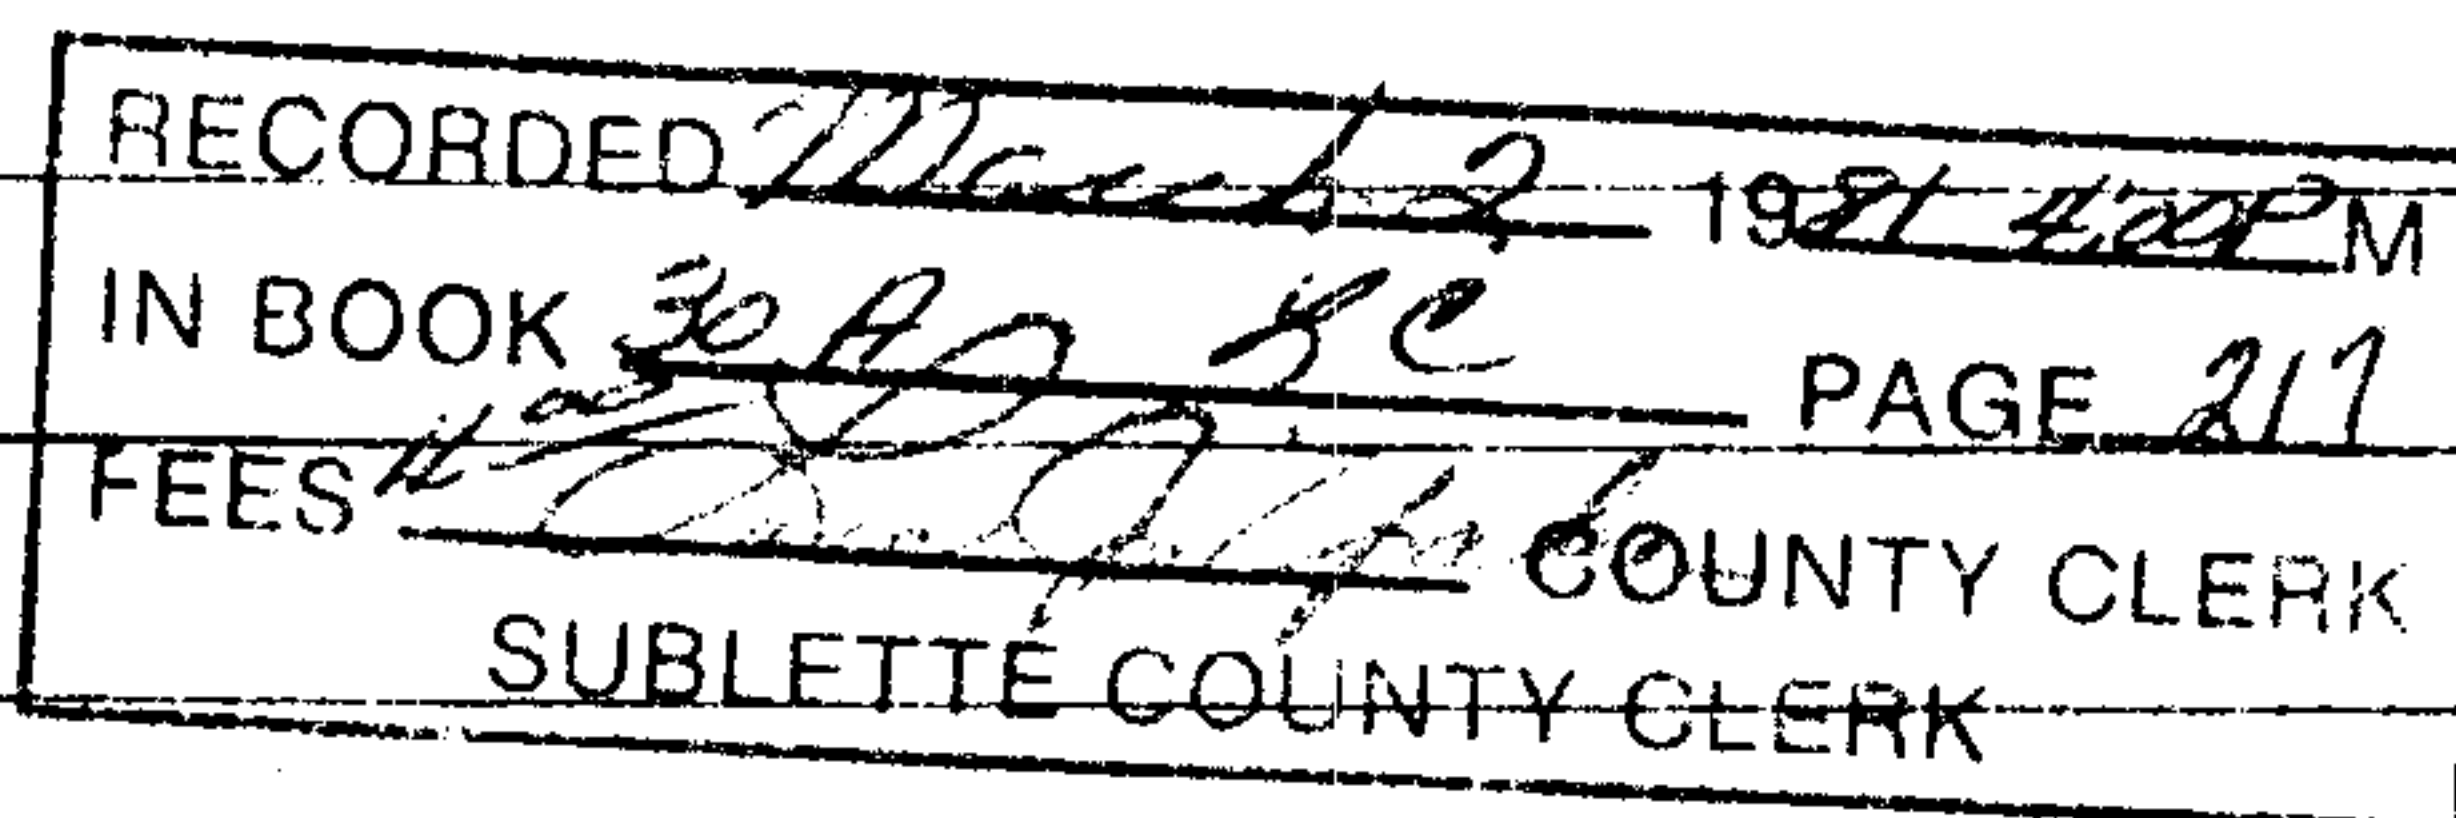 RECORDED March 2 1981 4:00 P M
IN BOOK 30 PAGE 217
FEES COUNTY CLERK
SUBLETTE COUNTY CLERK